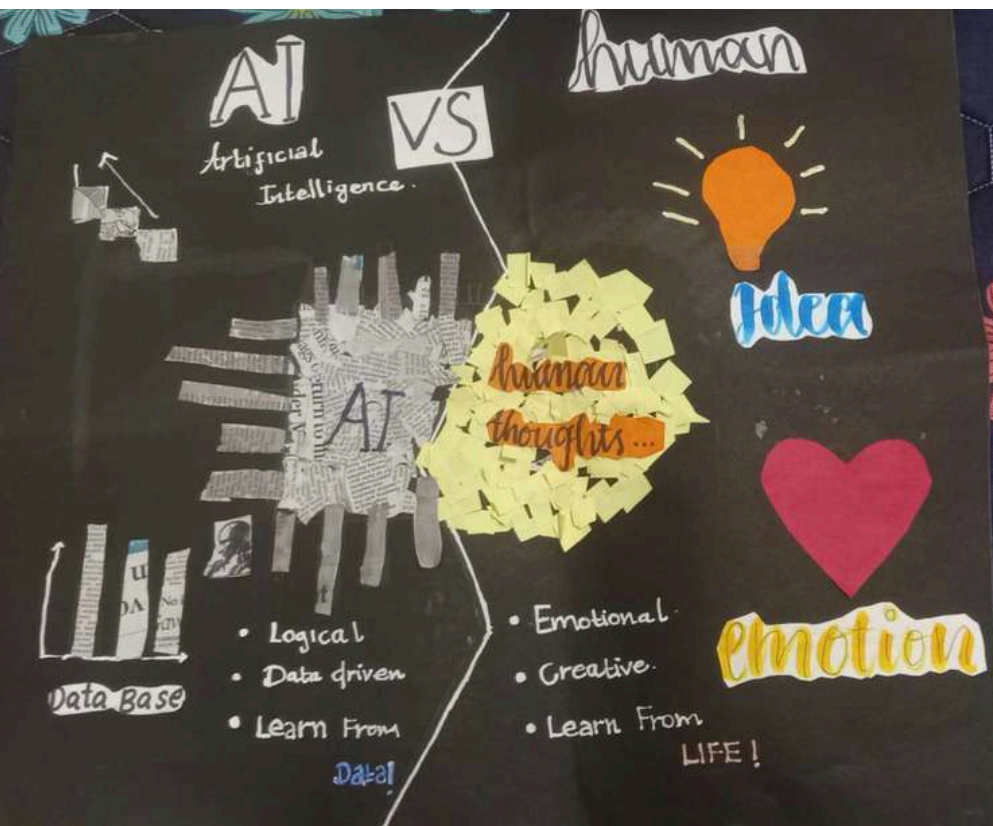 AI
VS
human
Artificial
Intelligence.
Idea
AI
human
thoughts...
emotion
Data Base
• Logical
• Data driven
• Learn From
Data!
• Emotional
• Creative.
• Learn From
LIFE!